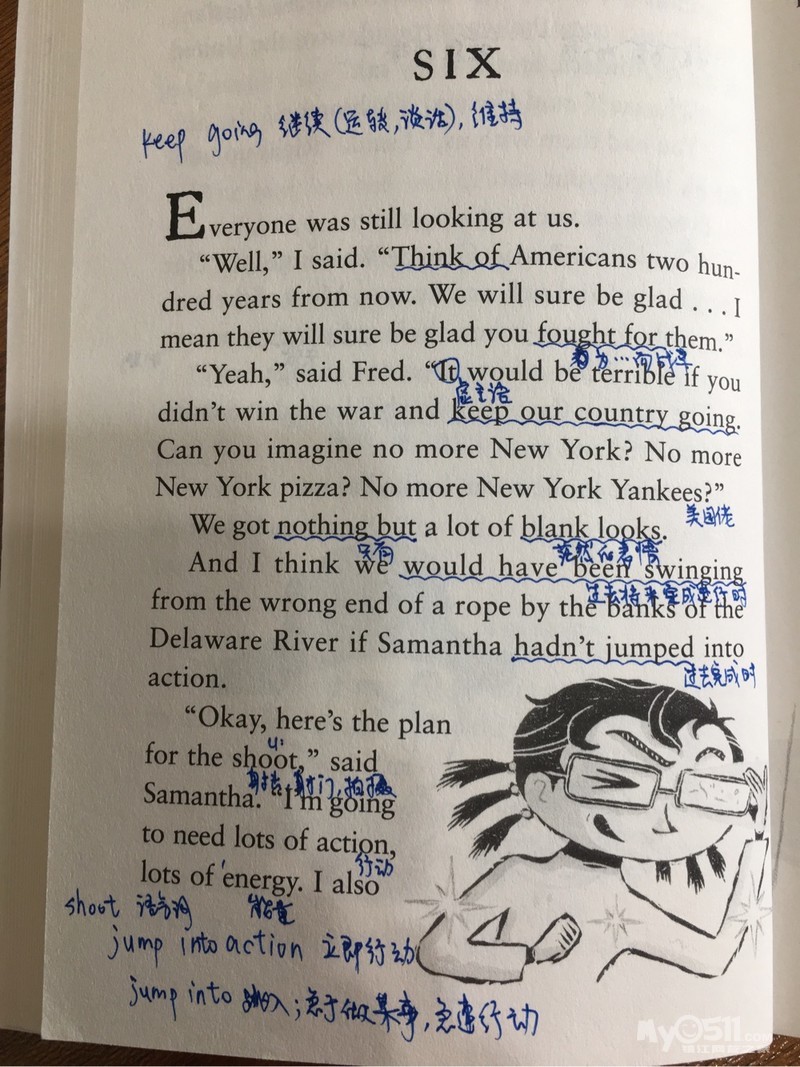 SIX
keep going 继续(运转,谈话),维持
Everyone was still looking at us.
“Well,” I said. “Think of Americans two hun-
dred years from now. We will sure be glad . . . I
mean they will sure be glad you fought for them.”
为…而战斗
“Yeah,” said Fred. “It would be terrible if you
虚主语
didn’t win the war and keep our country going.
Can you imagine no more New York? No more
New York pizza? No more New York Yankees?”
美国佬
We got nothing but a lot of blank looks.
只有 茫然的表情
And I think we would have been swinging
过去将来完成进行时
from the wrong end of a rope by the banks of the
Delaware River if Samantha hadn’t jumped into
过去完成时
action.
“Okay, here’s the plan
for the shoot,” said
射击,射门,拍摄
Samantha. “I’m going
to need lots of action,
行动
lots of energy. I also
shoot 语气词 能量
jump into action 立即行动
jump into 跳入;急于做某事,急速行动
My0511.com